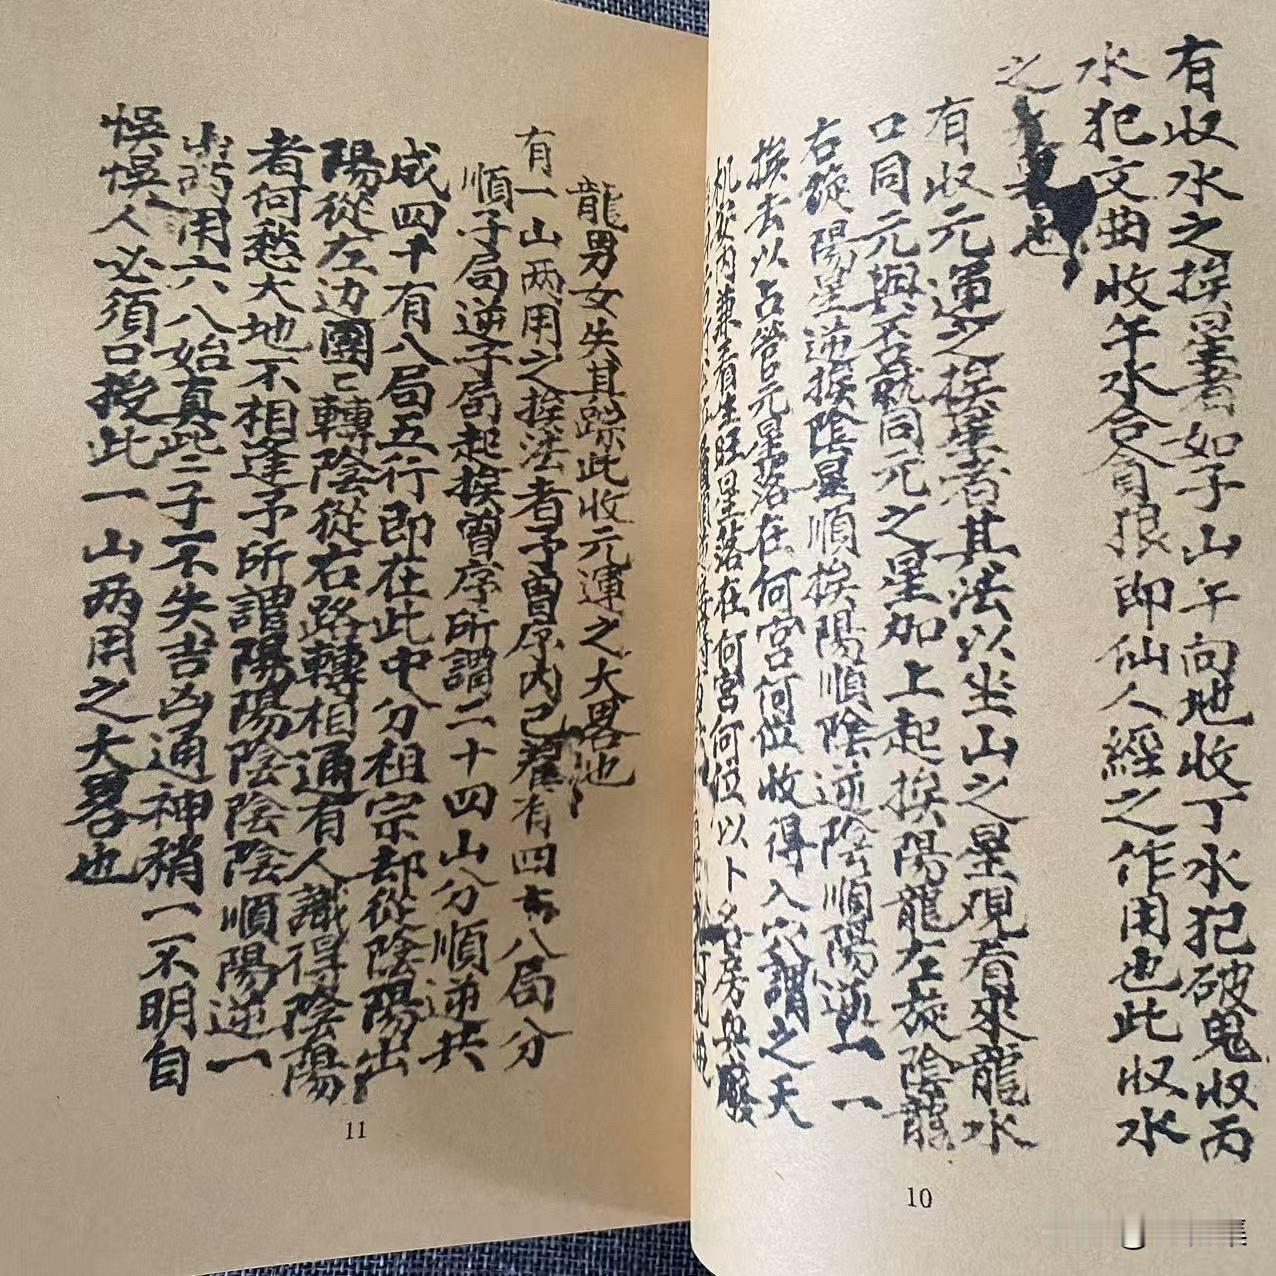 有收水之挨星著如子山午向地收丁水犯破鬼收丙
水犯文曲收午水合貪狼即仙人經之作用也此收水
之也
有收元運之挨星者其法以坐山之星观看來龍水
口同元與否就同元之星加上起挨陽龍左旋陰龍
右旋陽星逆挨陰星順挨陽順陰逆陰順陽逆一一
挨去以占管元星落在何宮何位收得入穴謂之天
机安内兼看生旺星落在何宮何位以卜名房與廢
龍男女失其踪此收元運之大畧也
有一山两用之挨法者予曾序内已有四十八局分
順子局逆子局起挨曾序所謂二十四山分順逆共
成四十有八局五行即在此中分祖宗却從陰陽出
陽從左边團己轉陰從右路轉相通有人識得陰陽
者何愁大地不相逢予所謂陽陽陰陰陰順陽逆一
山两用六八始真些二子一不失吉凶通神稍一不明自
悮悮人必須口授此一山两用之大畧也
11
10